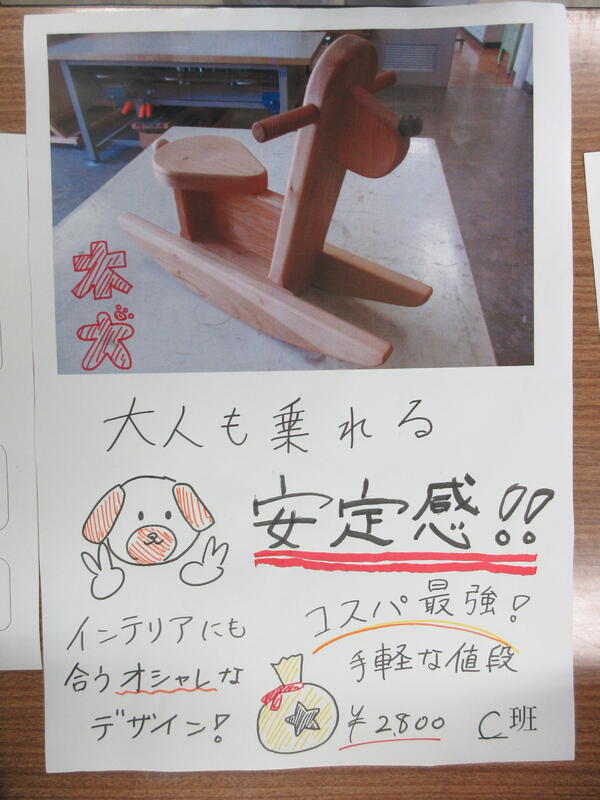 大人も乗れる
安定感!!
インテリアにも
合うオシャレな
デザイン!
コスパ最強!
手軽な値段
¥2,800
C班